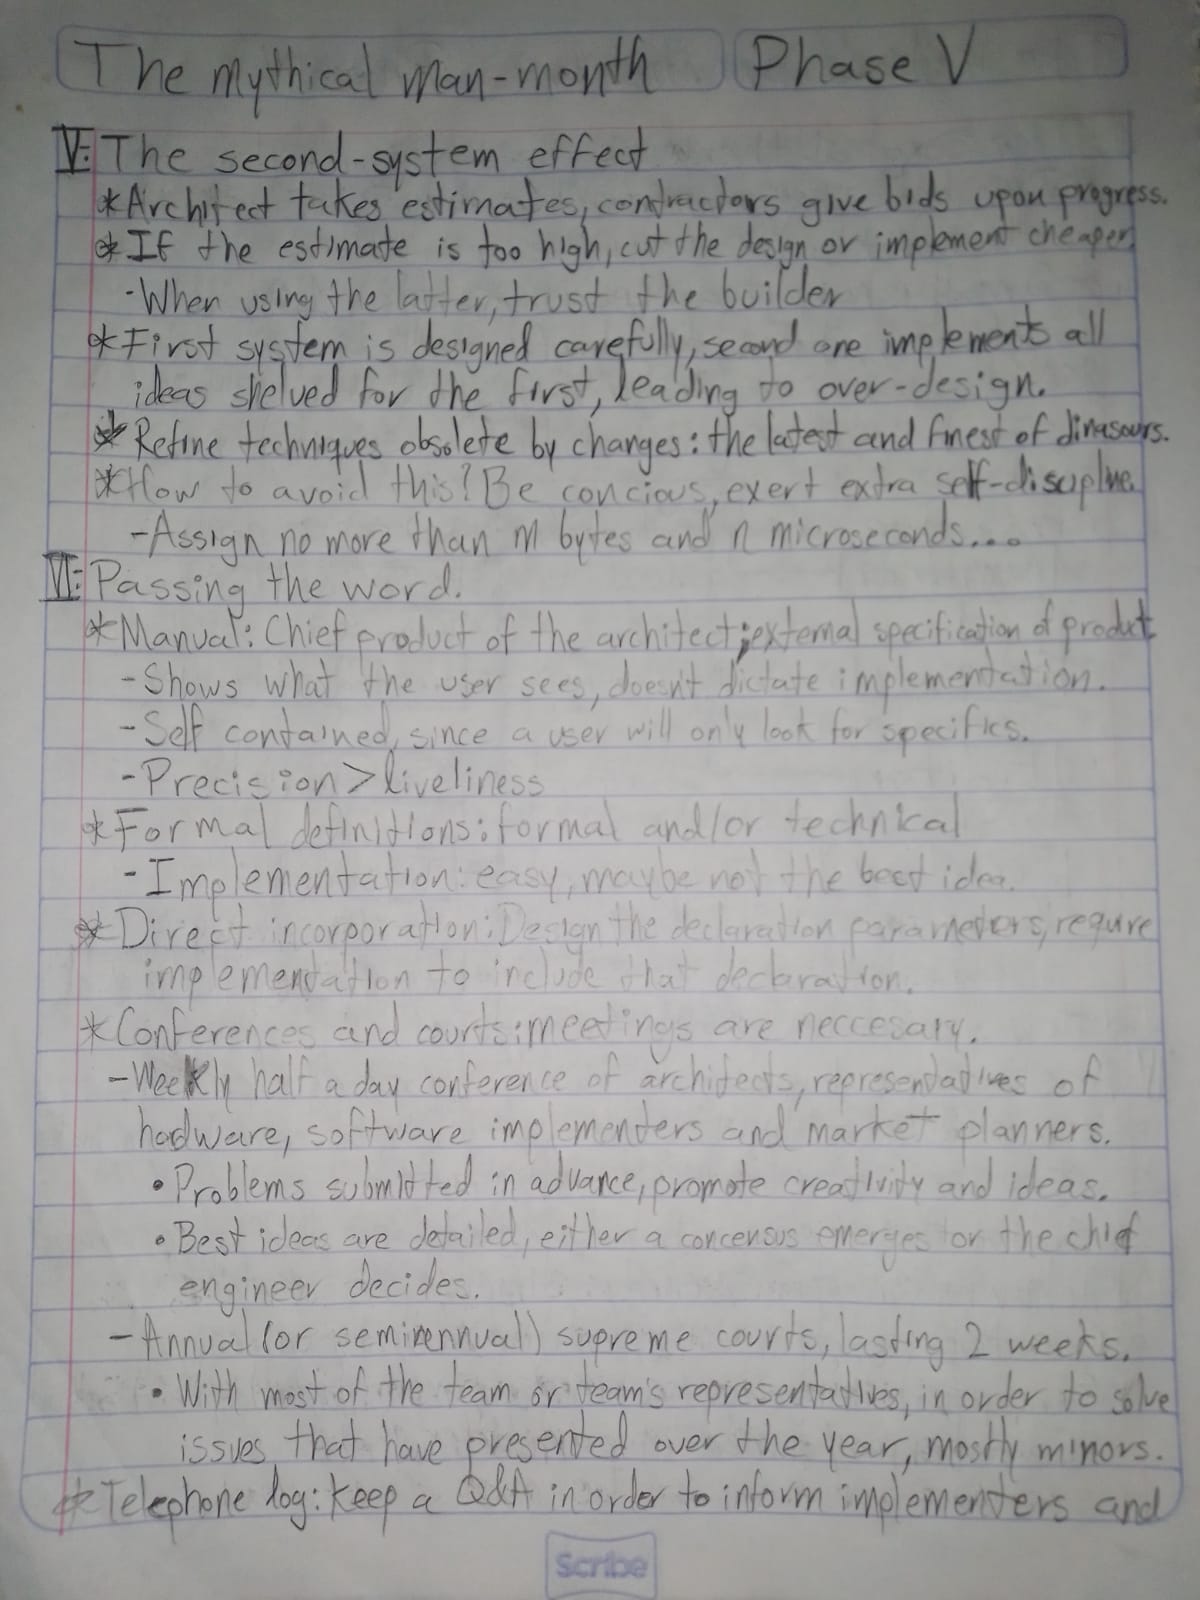 The mythical man-month Phase V
V: The second-system effect
*Architect takes estimates, contractors give bids upon progress.
*If the estimate is too high, cut the design or implement cheaper
-When using the latter, trust the builder
*First system is designed carefully, second one implements all
ideas shelved for the first, leading to over-design.
*Refine techniques obsolete by changes: the latest and finest of dinasours.
*How to avoid this? Be concious, exert extra self-discipline.
-Assign no more than m bytes and n microseconds....
VI: Passing the word.
*Manual: Chief product of the architect; external specification of product
-Shows what the user sees, doesn't dictate implementation.
-Self contained, since a user will only look for specifics.
-Precision > liveliness
*Formal definitions: formal and/or technical
-Implementation: easy, maybe not the best idea.
*Direct incorporation: Design the declaration parameters, require
implementation to include that declaration.
*Conferences and courts: meetings are neccesary.
-Weekly half a day conference of architects, representatives of
hadware, software implementers and market planners.
• Problems submitted in advance, promote creativity and ideas.
• Best ideas are detailed, either a concensus emerges or the chief
engineer decides.
-Annual (or semirennual) supreme courts, lasting 2 weeks.
• With most of the team or team's representatives, in order to solve
issues that have presented over the year, mostly minors.
*Telephone log: Keep a Q&A in order to inform implementers and
Scribe